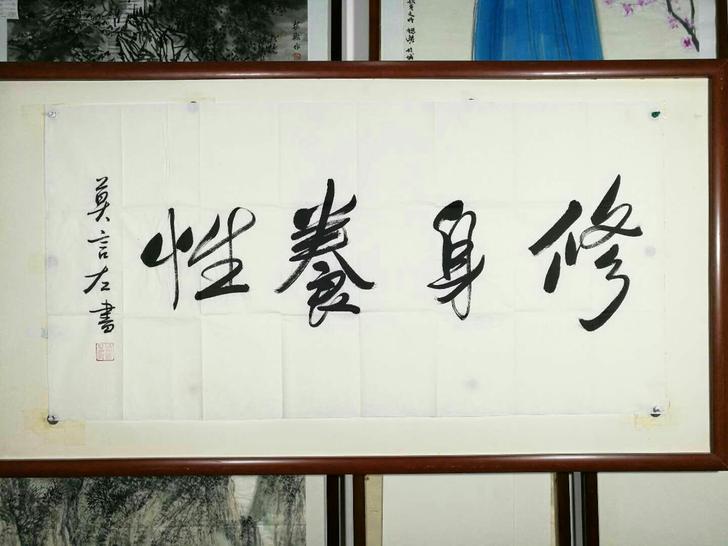 修身養性
莫言左書